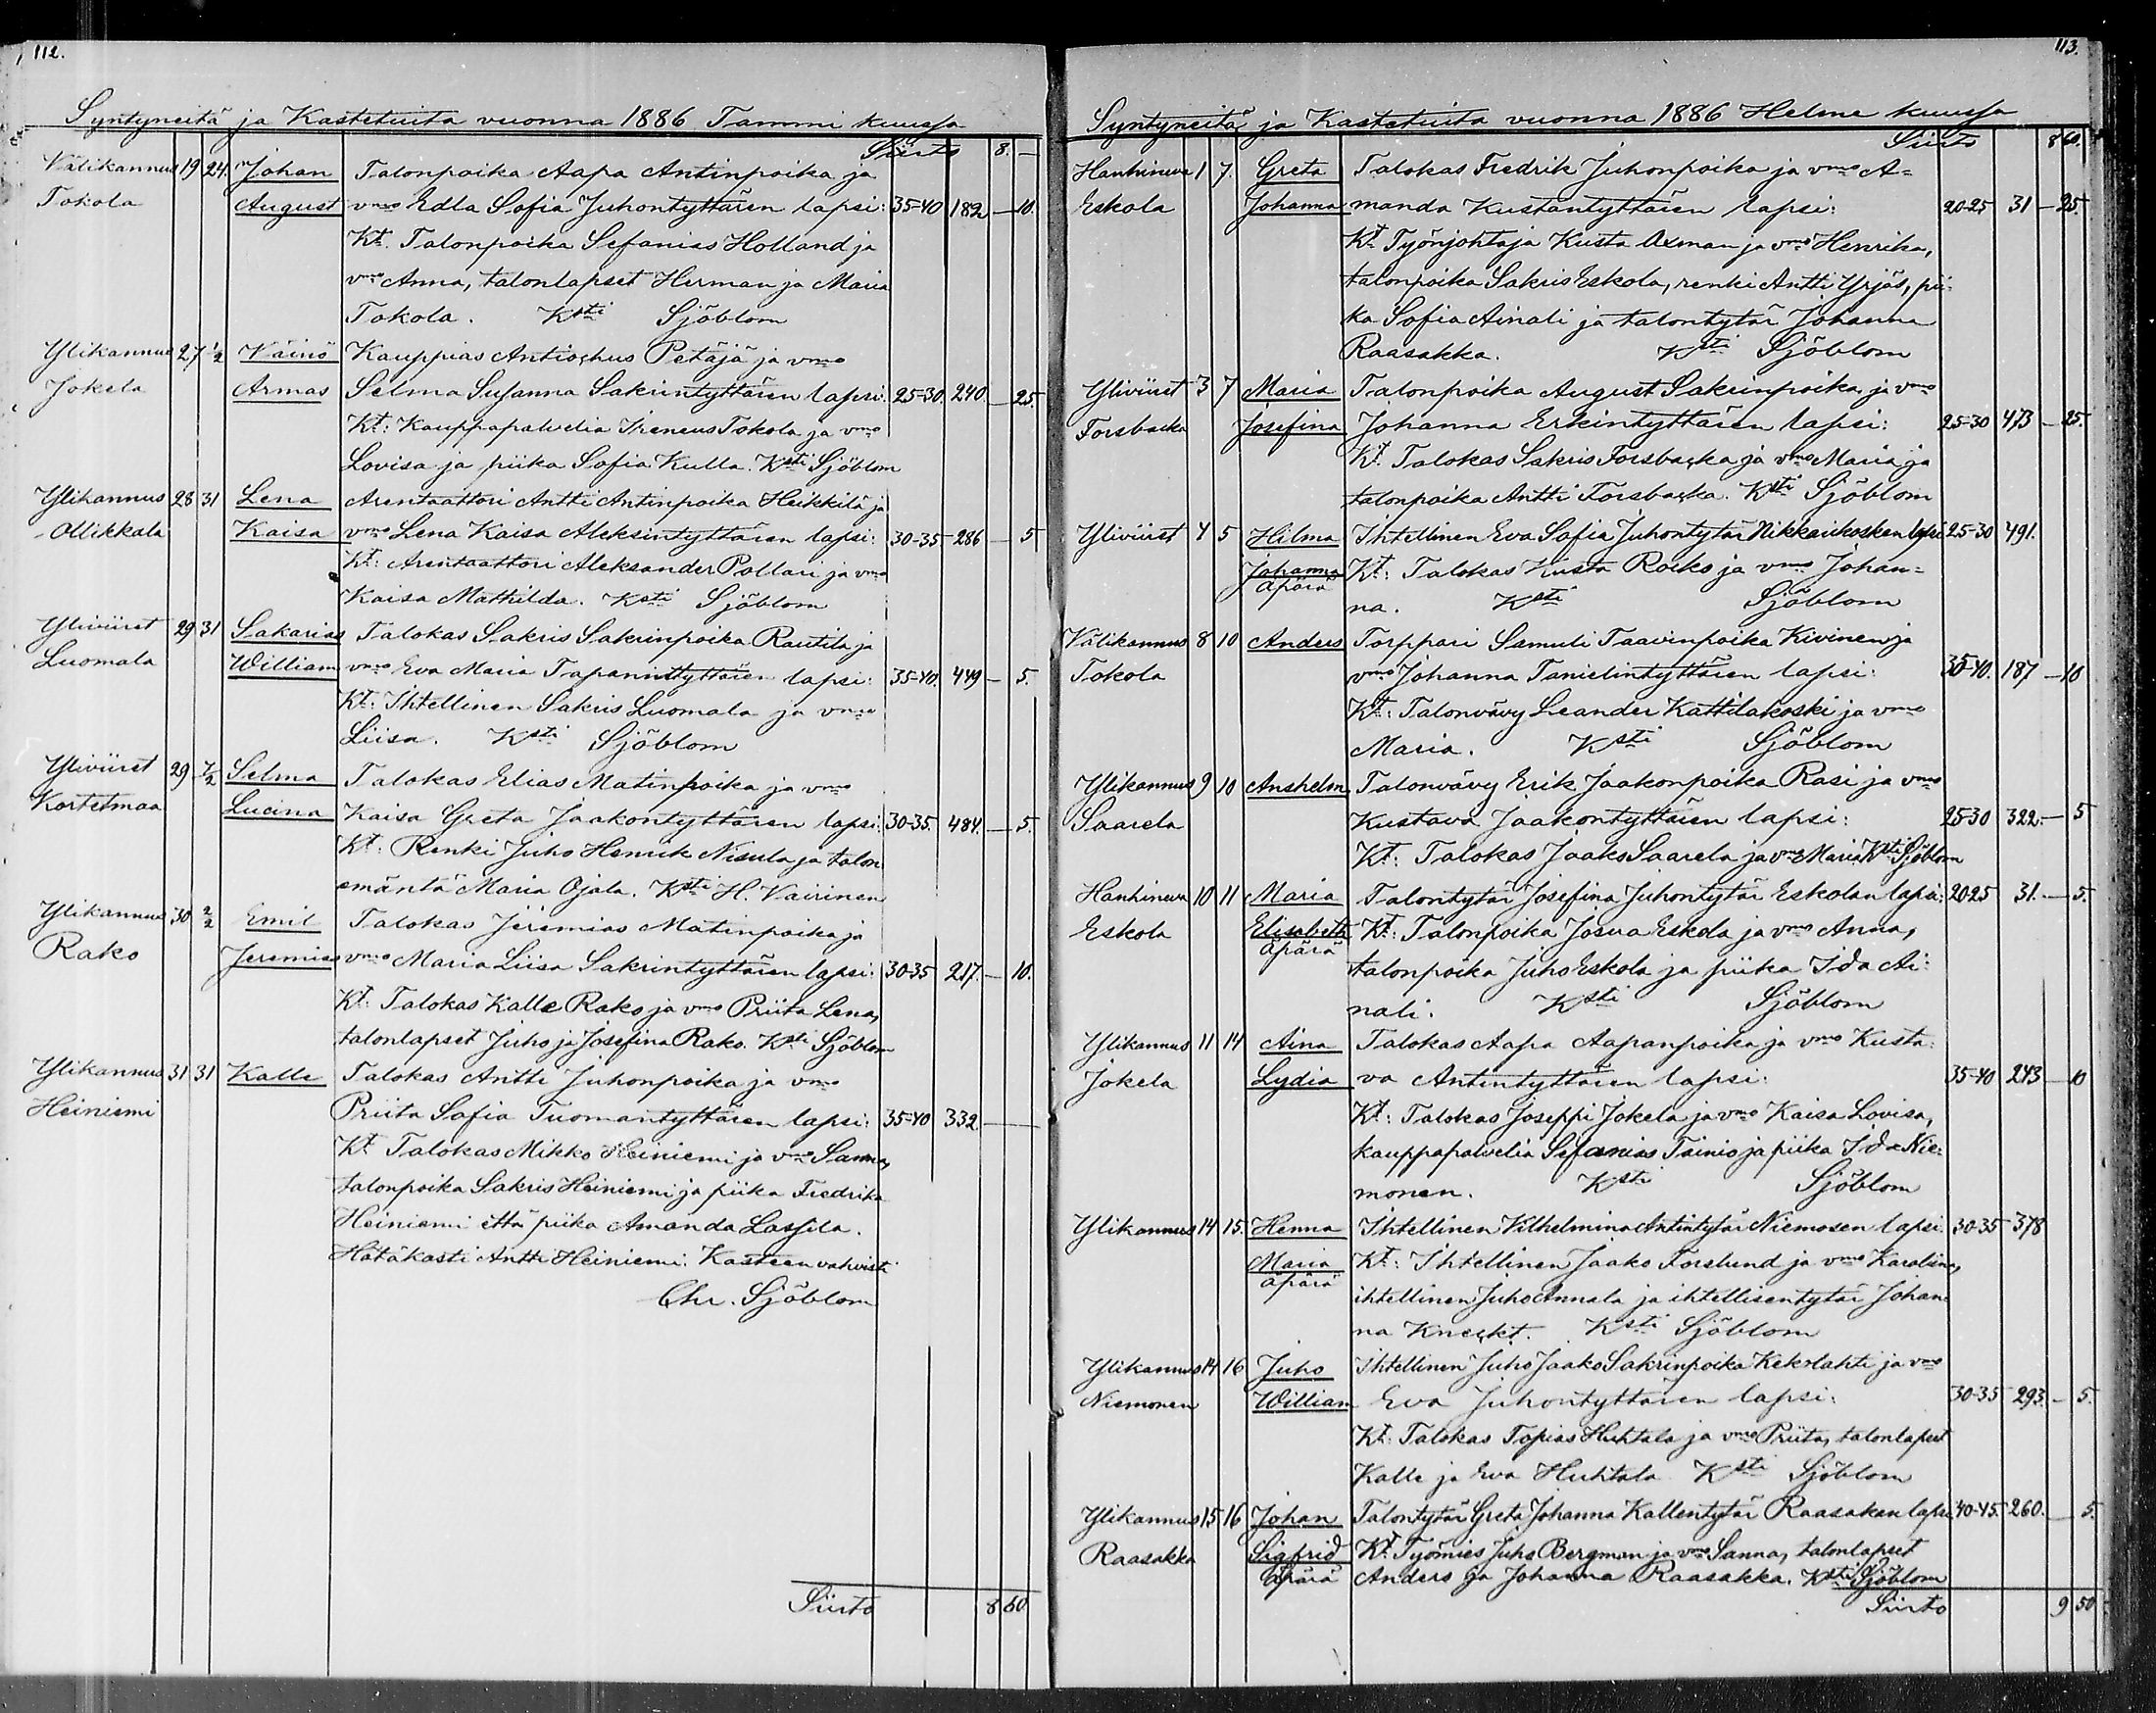 112.
Syntyneitä ja Kastetuita vuonna 1886 Tammi kuussa
Siirto 8. —
Välikannus 19 24. Johan Talonpoika Aapa Antinpoika ja
Tokola August vmo Edla Sofia Juhontyttären lapsi: 35-40 182 — 10.
Kt. Talonpoika Sefanias Holland ja
vmo Anna, talonlapset Herman ja Maria
Tokola. Ksti Sjöblom
Ylikannus 27 1/2 Väinö Kauppias Antiochus Petäjä ja vmo
Jokela Armas Selma Susanna Sakrintyttären lapsi. 25-30. 240. — 25.
Kt: Kauppapalvelia Ireneus Tokola ja vmo
Lovisa ja piika Sofia Kulla. Ksti Sjöblom
Ylikannus 28 31 Lena Arentaattori Antti Antinpoika Heikkilä ja
Ollikkala Kaisa vmo Lena Kaisa Aleksintyttären lapsi: 30-35 286 — 5
Kt: Arentaattori Aleksander Pollari ja vmo
Kaisa Mathilda. Ksti Sjöblom
Yliviiret 29 31 Sakarias Talokas Sakris Sakrinpoika Rautila ja
Luomala William vmo Eva Maria Tapanintyttären lapsi: 35-40. 449 — 5.
Kt: Ihtellinen Sakris Luomala ja vmo
Liisa. Ksti Sjöblom
Yliviiret 29 7/2 Selma Talokas Elias Matinpoika ja vmo
Kortetmaa Lucina Kaisa Greta Jaakontyttären lapsi: 30-35. 484. — 5.
Kt: Renki Juho Henrik Nisula ja talon
emäntä Maria Ojala. Ksti H. Vairinen
Ylikannus 30 2/2 Emil Talokas Jeremias Matinpoika ja
Rako Jeremias vmo Maria Liisa Sakrintyttären lapsi: 30-35 217. — 10.
Kt: Talokas Kalle Rako ja vmo Priita Lena,
talonlapset Juho ja Josefina Rako. Ksti Sjöblom
Ylikannus 31 31 Kalle Talokas Antti Juhonpoika ja vmo
Heiniemi Priita Sofia Tuomantyttären lapsi: 35-40 332 —
Kt Talokas Mikko Heiniemi ja vmo Sanna,
talonpoika Sakris Heiniemi ja piika Fredrika
Heiniemi että piika Amanda Lassila.
Hätäkasti Antti Heiniemi. Kasteen vahvisti
Chr. Sjöblom
Siirto 8 60
113.
Syntyneitä ja Kastetuita vuonna 1886 Helme kuussa
Siirto 8 60.
Hanhineva 1 7. Greta Talokas Fredrik Juhonpoika ja vmo A=
Eskola Johanna manda Kustantyttären lapsi: 20-25 31 — 25.
Kt Työnjohtaja Kusta Axman ja vmo Henrika,
talonpoika Sakris Eskola, renki Antti Yrjäs, pii-
ka Sofia Ainali ja talontytär Johanna
Raasakka. Ksti Sjöblom
Yliviiret 3 7 Maria Talonpoika August Sakrinpoika ja vmo
Forsbacka Josefina Johanna Erkintyttären lapsi: 25-30 473 — 25.
Kt. Talokas Sakris Forsbacka ja vmo Maria ja
talonpoika Antti Forsbacka. Ksti Sjöblom
Yliviiret 4 5 Hilma Ihtellinen Eva Sofia Juhontytär Nikkarikosken lapsi 25-30 491.
Johanna Kt: Talokas Kusta Roiko ja vmo Johan=
äpärä na. Ksti Sjöblom
Välikannus 8 10 Anders Torppari Samuli Taavinpoika Kivinen ja
Tokola vmo Johanna Tanielintyttären lapsi: 35-40. 187 — 10
Kt: Talonvävy Leander Kattilakoski ja vmo
Maria. Ksti Sjöblom
Ylikannus 9 10 Anshelm Talonvävy Erik Jaakonpoika Rasi ja vmo
Saarela Kustava Jaakontyttären lapsi: 25-30 322. — 5
Kt: Talokas Jaako Saarela ja vmo Maria Ksti Sjöblom
Hanhineva 10 11 Maria Talontytär Josefina Juhontytär Eskolan lapsi: 20-25 31. — 5.
Eskola Elisabeth Kt: Talonpoika Josua Eskola ja vmo Anna,
äpärä talonpoika Juho Eskola ja piika Ida Ai-
nali. Ksti Sjöblom
Ylikannus 11 14 Aina Talokas Aapa Aapanpoika ja vmo Kusta-
Jokela Lydia va Antintyttären lapsi: 35-40 243 — 10
Kt: Talokas Joseppi Jokela ja vmo Kaisa Lovisa,
kauppapalvelia Sefanias Tainio ja piika Ida Nie-
monen. Ksti Sjöblom
Ylikannus 14 15. Henna Ihtellinen Vilhelmina Antintytär Niemosen lapsi 30-35 378
Maria Kt: Ihtellinen Jaako Forslund ja vmo Karolina,
äpärä ihtellinen Juho Annala ja ihtellisentytär Johan-
na Kneckt. Ksti Sjöblom
Ylikannus 14 16 Juho Ihtellinen Juho Jaako Sakrinpoika Kekolahti ja vmo
Niemonen William Eva Juhontyttären lapsi: 30-35 293. — 5.
Kt: Talokas Topias Huhtala ja vmo Priita, talonlapset
Kalle ja Eva Huhtala Ksti Sjöblom
Ylikannus 15 16 Johan Talontytär Greta Johanna Kallentytär Raasakan lapsi 40-45. 260. — 5.
Raasakka Sigfrid Kt. Työmies Juho Bergman ja vmo Sanna, talonlapset
äpärä Anders ja Johanna Raasakka. Ksti Sjöblom
Siirto 9 50